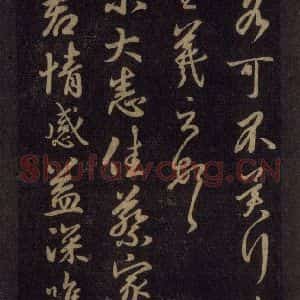 各可不
羲之
大悉佳蔡家
君情感益深唯
Shufawang.CN